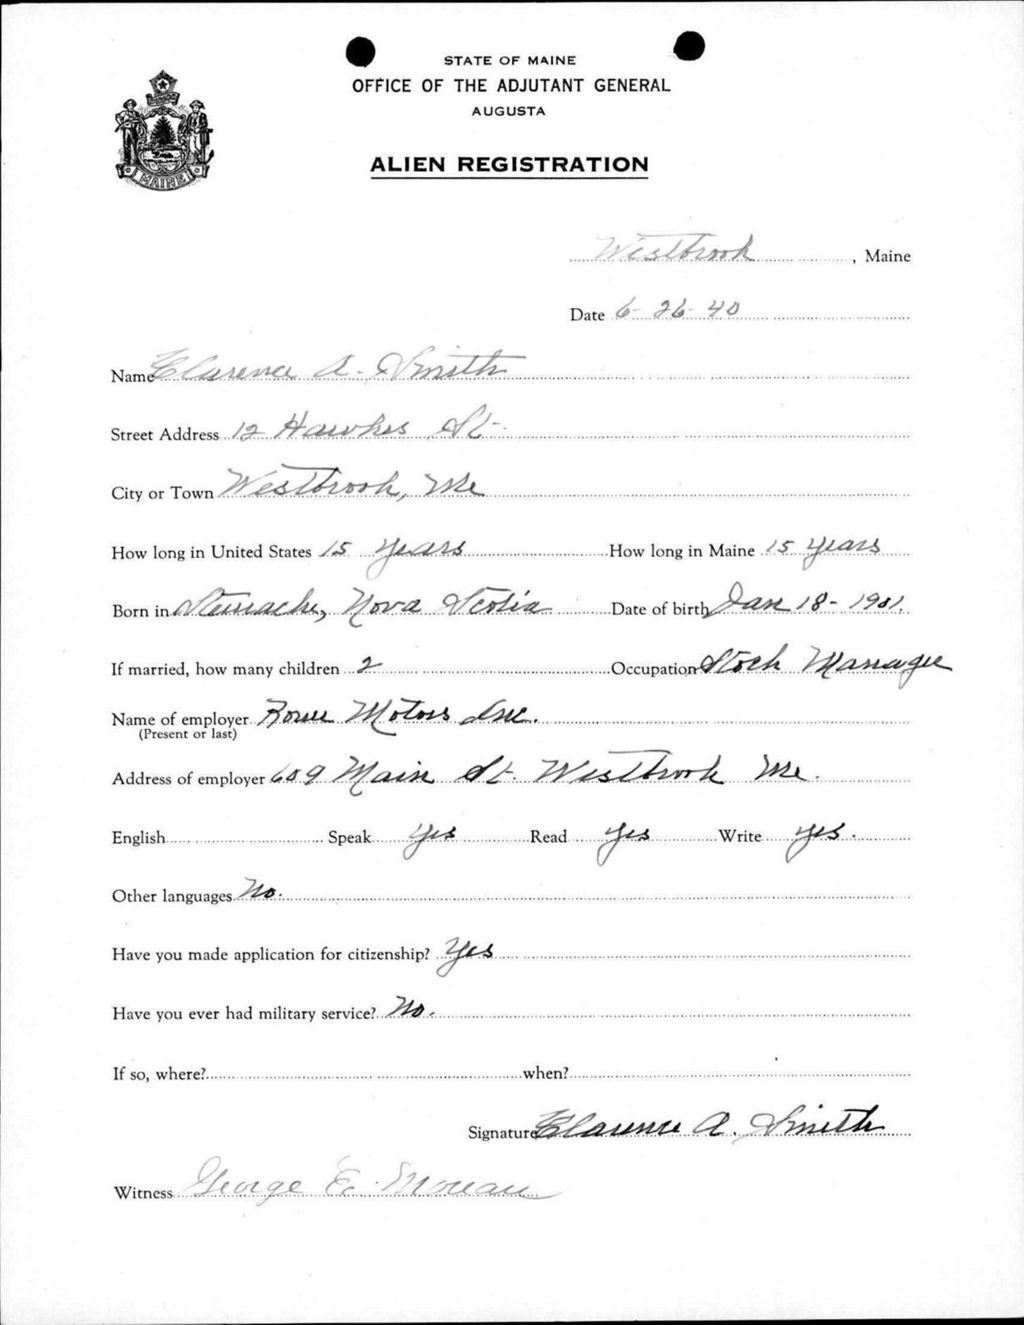 STATE OF MAINE
OFFICE OF THE ADJUTANT GENERAL
AUGUSTA
MAINE
ALIEN REGISTRATION
Westbrook, Maine
Date 6-26-40
Name Clarence A. Smith
Street Address 12 Hawkes St.
City or Town Westbrook, Me
How long in United States 15 years How long in Maine 15 years
Born in Nova Scotia Date of birth Jan 18-1901.
If married, how many children 2 Occupation Stock Manager
Name of employer Rowe Motors Inc.
(Present or last)
Address of employer 609 Main St. Westbrook Me.
English Speak yes Read yes Write yes.
Other languages No.
Have you made application for citizenship? Yes
Have you ever had military service? No.
If so, where? when?
Signature Clarence A. Smith
Witness George E. Moreau